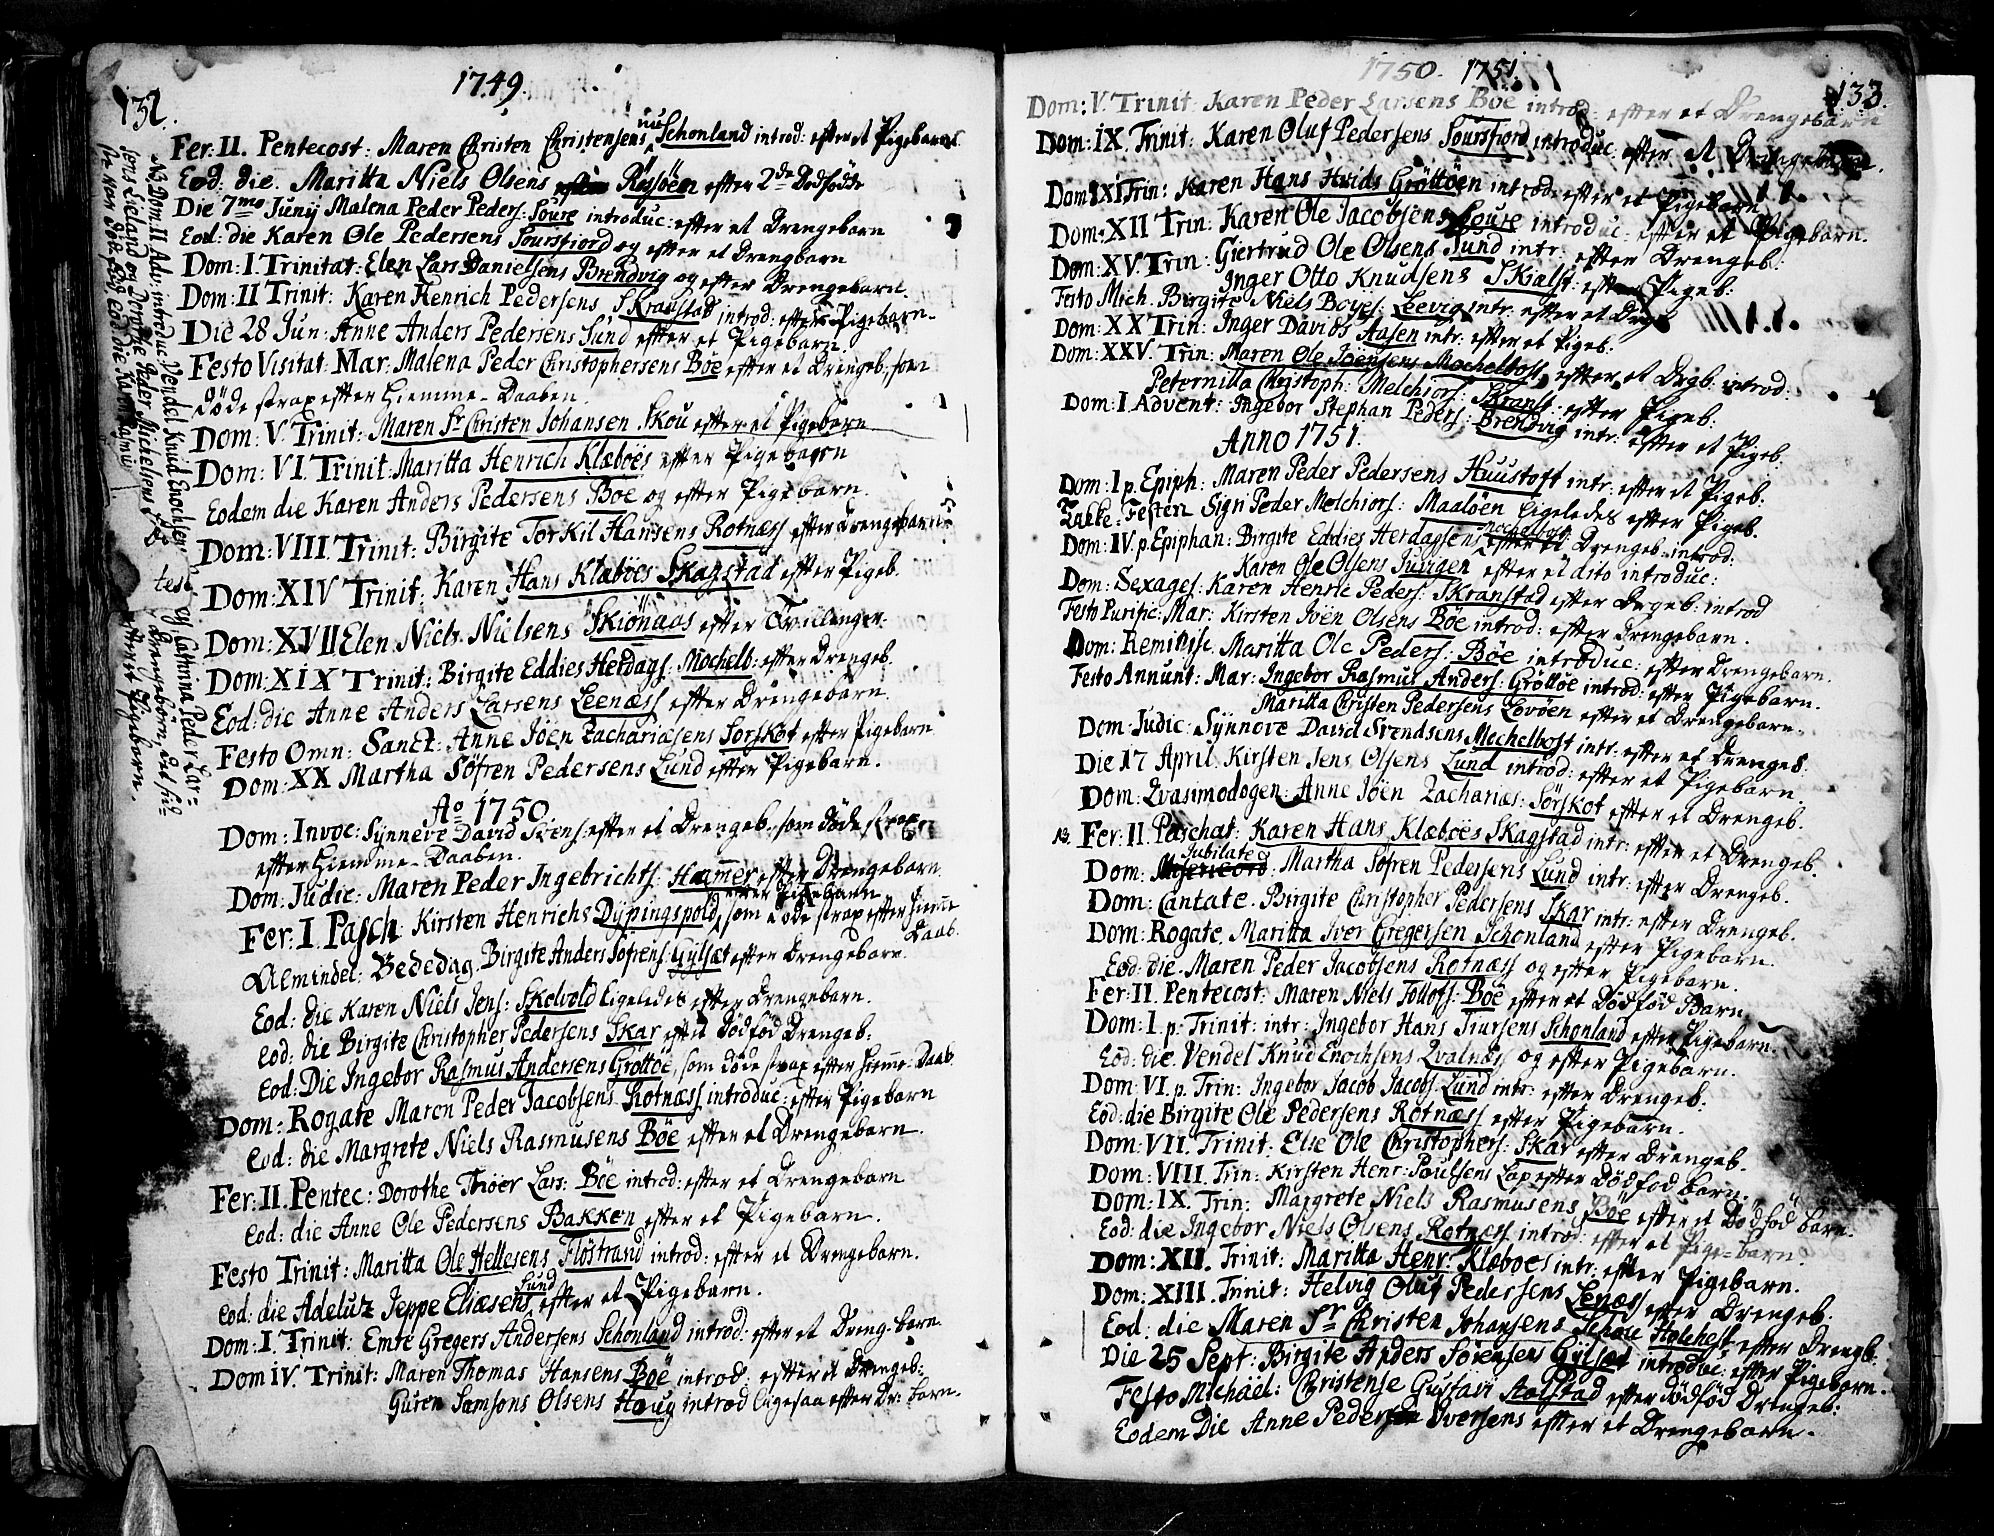 132.
1749.
Fer: II. Pentecost: Maren Christen Christensens Schonland introd: efter et Pigebarn
Eod: die. Maritta Niels Olsens Røssöen efter 2de Dødfödde
Die 7mo Junij Malena Peder Peders: Soure introduc: efter et Drengebarn
Eod: die Karen Ole Pedersens Soursfiord og efter et Drengbarn
Dom: I. Trinitat: Elen Lars Danielsens Brendvig og efter Drengebarn.
Dom: II Trinit: Karen Henrich Pedersens Skranstad introd: efter Pigebarn.
Die 28 Jun: Anne Anders Pedersens Sund efter et Pigebarn.
Festo Visitat: Mar: Malena Peder Christophersens Bøe efter et Drengeb: som
døde strax efter Hiemme-Daaben.
Dom: V. Trinit: Maren Sr Christen Johansen Skou efter et Pigebarn
Dom: VI. Trinit: Maritta Henrich Klæböes efter Pigebarn
Eodem die Karen Anders Pedersens Boe og efter Pigebarn.
Dom: VIII. Trinit: Birgite Torkil Hansens Rotnæss efter Drengebarn
Dom: XIV Trinit: Karen Hans Klæböes Skagstad efter Pigeb.
Dom: XVII Elen Niels Nielsens Skiönaas efter Tvillinger.
Dom: XIX Trinit: Birgite Eddies Herdags: Mochelb: efter Drengeb.
Eod: die Anne Anders Larsens Leenæss efter Drengebarn.
Festo Omn: Sanct: Anne Jöen Zachariæsens Sorskot efter Pigebarn
Dom: XX Martha Söfren Pedersens Lund efter Pigebarn.
Ao 1750.
Dom: Invoc: Synneve David Svens: efter et Drengeb: som døde strax
efter Hiemme-Daaben.
Dom: Judic: Maren Peder Ingebrichts: Hammer efter Drengebarn
Fer: I. Pasch: Kirsten Henrichs Dypingspold, efter Pigebarn som døde strax efter Hieme Daab.
Almindel: Bededag. Birgite Anders Sofrens: Gylset efter Drengebarn.
Eod: die Karen Niels Jens: Skelvold ligeledes efter Drengebarn.
Eod: die Birgite Christopher Pedersens Skar efter dödfød Drengeb:
Eod: Die Ingebor Rasmus Andersens Gröttöe, som døde strax efter Hieme-Daab
Dom: Rogate Maren Peder Jacobsens Rotnæss introduc: efter Pigebarn
Eod: die Margrete Niels Rasmusens Böe efter et Drengebarn.
Fer: II. Pentec: Dorothe Thöer Lars: Böe introd: efter et Drengebarn
Eod: die Anne Ole Pedersens Bakken efter et Pigebarn.
Festo Trinit: Maritta Ole Hellesens Flöstrand introd: efter et Drengebarn.
Eod: die Adelutz Jeppe Eliæsens Lund efter et Pigebarn.
Dom: I. Trinit: Emre Gregers Andersens Schonland introd: efter et Dreng-barn
Dom IV. Trinit: Maren Thomas Hansens Böe introd: efter et Drengeb:
Guren Samsons Olsens Haug introd ligesaa efter Dr: barn.
NB. Dom: II Adv: introduc: Vendel Knud Enochsens
og Cathrina Peder Lar-
Lieland og Dorothe Peder Michelsens
efter et Pigebarn.
1750. 1751.
133.
Dom: V. Trinit: Karen Peder Larsens Böe introd: efter et Drengebarn
Dom: IX. Trinit: Karen Oluf Pedersens Soursfiord introduc: efter et Drengebarn.
Dom: XI Trin: Karen Hans Hvids Gröttöen introd: efter et Pigebarn
Dom: XII Trin: Karen Ole Jacobsens Soure introduc: efter et Pigebarn.
Dom: XV. Trin: Giertrud Ole Olsens Sund intr: efter Drengeb:
Inger Otto Knudsens Skialst: efter Pigeb:
Festo Mich. Birgite Niels Boyes: Leevig intr: efter et Drgb
Dom: XX Trin: Inger Davids Aasen intr: efter et Pigeb:
Dom: XXV. Trin: Maren Ole Jöensens Mochelbost, efter et Drgb: introd:
Peternilla Christoph: Melchiors: Skranst: efter Pigeb:
Dom: I Advent: Ingebor Stephan Peders: Brendvig intr: efter et Pigeb:
Anno 1751.
Dom: I p. Epiph: Maren Peder Pedersens Huustoft intr: efter et Pigeb:
Takke-Festen Sign Peder Melchiors: Maalöen ligeledes efter Pigeb.
Dom: IV. p. Epiphan: Birgite Eddies Herdagsens Mochelbost efter et Drengeb: introd:
Karen Ole Olsens Juvigen efter et dito introduc:
Dom: Sexages: Karen Henric Peders: Skranstad efter Drgeb: introd
Festo Purific: Mar: Kirsten Jöen Olsens Böe introd: efter Drengebarn.
Dom: Reminisc: Maritta Ole Peders: Böe introduc: efter Drengebarn.
Festo Annunt: Mar: Ingebor Rasmus Anders: Gröttöe introd: efter Pigebarn.
Maritta Christen Pedersens Lovöen efter et Drengebarn.
Dom: Judic: Synnove David Svendsens Mochelbost intr: efter et Drengeb.
Die 17 April. Kirsten Jens Olsens Lund introd: efter et Pigebarn.
Dom: Qvasimodogen: Anne Jöen Zachariæs: Sörskot efter et Drengeb.
Fer: II. Paschat: Karen Hans Klæboës Skagstad intr: efter et Drengeb.
Dom: Jubilate: Martha Sofren Pedersens Lund intr: efter Drengeb.
Dom: Cantate. Birgite Christopher Pedersens Skar intr: efter Drengeb.
Dom: Rogate. Maritta Iver Gregersen Schonland efter Pigebarn.
Eod: die. Maren Peder Jacobsens Rotnæss og efter Pigebarn.
Fer: II. Pentecost: Maren Niels Tollofs: Böe efter et Dödfød Barn.
Dom: I. p: Trinit: intr: Ingebor Hans Siursens Schonland efter Pigebarn.
Eod: die. Vendel Knud Enochsens Qvalnæs og efter Pigebarn.
Dom: VI. p. Trin: Ingebor Jacob Jacobs: Lund intr: efter Drengeb:
Eod: die Birgite Ole Pedersens Rotnæss efter Pigebarn.
Dom: VII. Trinit: Elie Ole Christophers: Skar efter Drengeb.
Dom: VIII. Trin: Kirsten Henr: Poulsens Lap efter dödfod barn.
Dom: IX. Trin: Margrete Niels Rasmusens Böe efter et dödfød barn.
Eod: die Ingebor Niels Olsens Rotnæss introd: efter et Pige-barn.
Dom: XII. Trinit: Maritta Henr: Klæboes intr: efter Pigebarn.
Dom: XIII. Trinit: Helvig Oluf Pedersens Lenæs efter Drengeb:
Eod: die Maren Sr Christen Johansens Schou Holchest efter Drengb
Die 25 Sept: Birgite Anders Sörensens Gylset introduc: efter Pigebarn.
Festo Michäel: Christense Gustavi Aalstad efter dödfød Drengeb:
Eodem Die Anne Pedersen Iversens efter et Drengebarn.